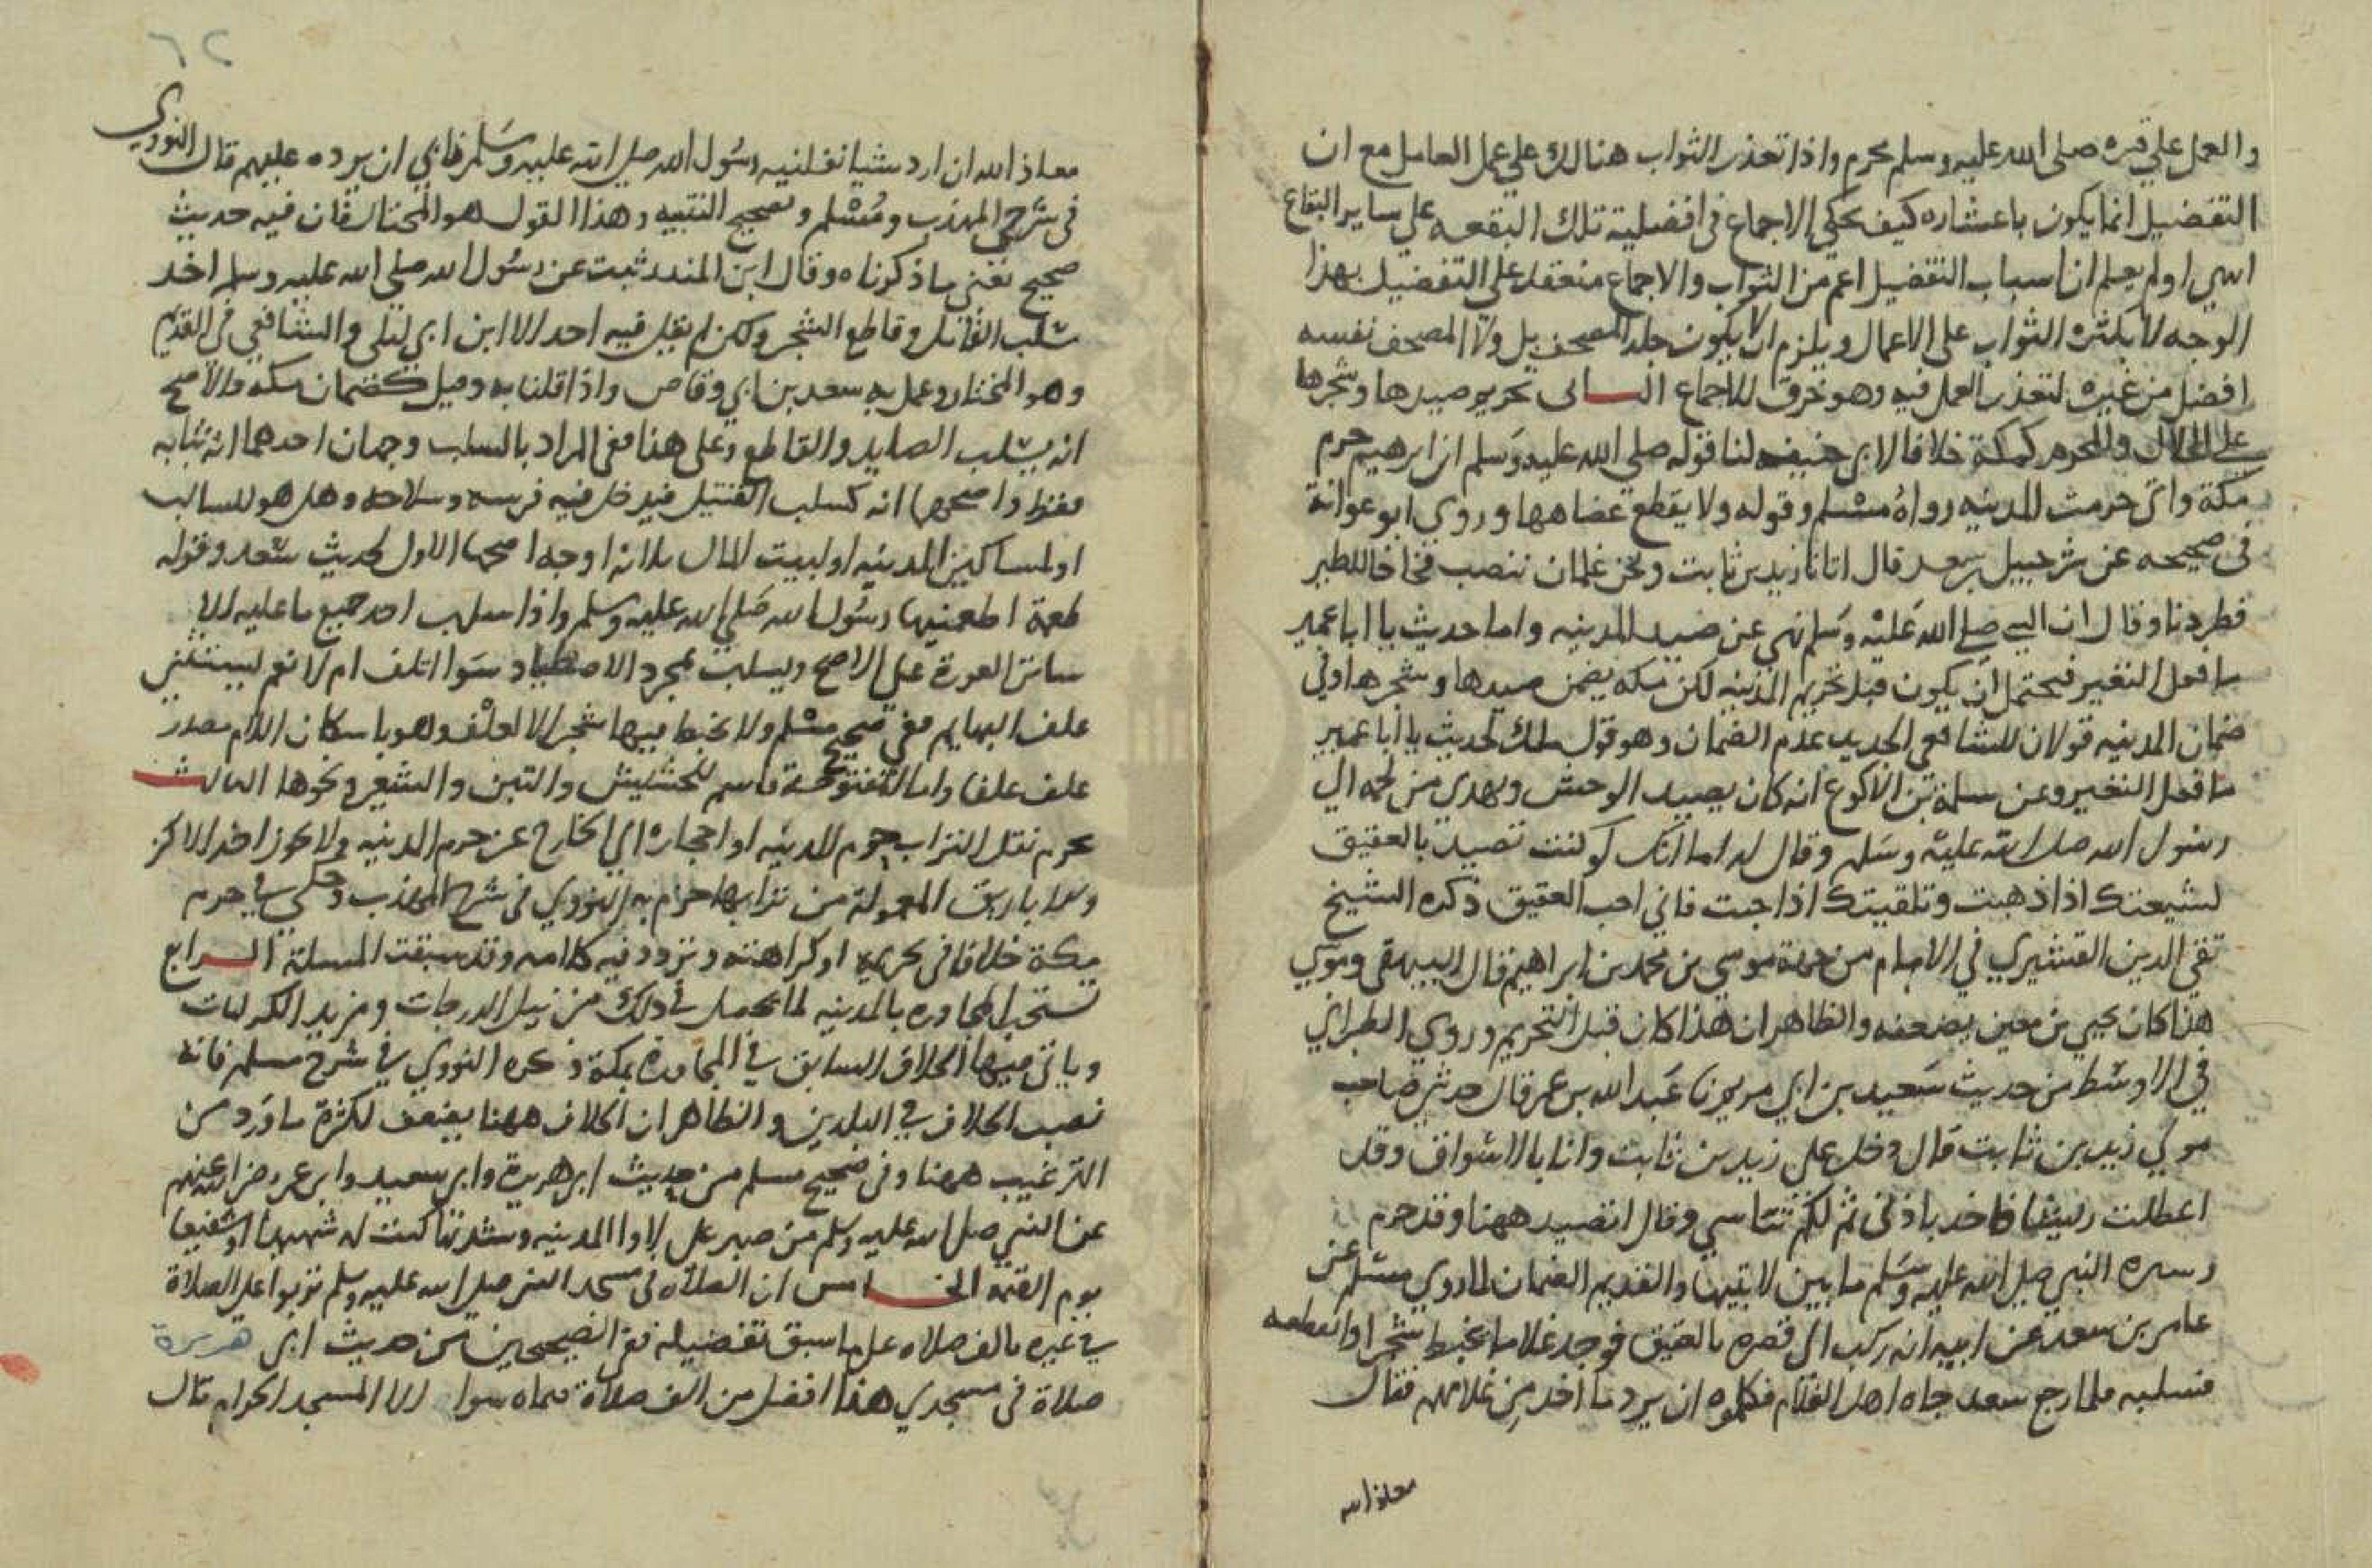 والعمل على قبره صلى الله عليه وسلم محرم واذا تعذر الثواب هنالك على عمل العامل مع ان
التفضيل انما يكون باعتباره كيف يحكي الاجماع في افضلية تلك البقعه على ساير البقاع
اولم يعلم ان اسباب التفضيل اعم من الثواب والاجماع منعقد على التفضيل بهذا
الوجه لا بكثره الثواب على الاعمال ويلزم ان لا يكون جلد المصحف بل ولا المصحف نفسه
افضل من غيره لتعذر العمل فيه وهو خرق للاجماع الثاني تحريم صيدها وشجرها
على الحلال والمحرم كمكة خلافا لابي حنيفه لنا قوله صلى الله عليه وسلم ان ابرهيم حرم
مكة واني حرمت المدينه رواه مسلم وقوله ولا يقطع عضاهها وروى ابو عوانة
في صحيحه عن شرحبيل بن سعد قال اتانا زيد بن ثابت ونحن غلمان ننصب فخاخا للطير
فطردنا وقال ان النبي صلى الله عليه وسلم نهى عن صيد المدينه واما حديث يا ابا عمير
ما فعل النغير فيحتمل ان يكون قبل تحريم المدينه لكن مكه يضمن صيدها وشجرها وفي
ضمان المدينه قولان للشافعي الجديد عدم الضمان وهو قول ملك لحديث يا ابا عمير
ما فعل النغير وعن سلمة بن الاكوع انه كان يصيد الوحش ويهدي من لحمه الى
رسول الله صلى الله عليه وسلم وقال له اما انك لو كنت تصيد بالعقيق
لشيعتك اذا ذهبت وتلقيتك اذا جيت فاني احب العقيق ذكره الشيخ
تقي الدين القشيري في الامام من جهة موسى بن محمد بن ابراهيم قال البيهقي وموسى
هذا كان يحيى بن معين يضعفه والظاهر ان هذا كان قبل التحريم وروى الطبراني
في الاوسط من حديث سعيد بن ابي مريم عبد الله بن عمر قال حدثني صاحب
مولى زيد بن ثابت قال دخل على زيد بن ثابت وانا بالاسواق وقد
اصطدت فاخذ باذني ثم لكز وقال اتصيد ههنا وقد حرم
رسول النبي صلى الله عليه وسلم ما بين لابتيها والقديم الضمان لما روي مسلم عن
عامر بن سعد عن ابيه انه ركب الى قصره بالعقيق فوجد غلاما يخبط شجرا او يقطعه
فسلبه فلما رجع سعد جاه اهل الغلام فكلموه ان يرد ما اخذ من غلامهم فقال
معاذ الله
٦٢
معاذ الله ان ارد شيا نفلنيه رسول الله صلى الله عليه وسلم فابي ان يرده عليهم قال النووي
في شرحي المهذب ومسلم وتصحيح التنبيه وهذا القول هو المختار فان فيه حديث
صحيح نعني ما ذكوناه وقال ابن المنذر ثبت عن رسول الله صلى الله عليه وسلم اخذ
سلب القاتل وقاطع الشجر ولكن لم يقل فيه احد الا ابن ابي ليلى والشافعي في القديم
وهو المختار وعمل به سعد بن ابي وقاص واذا قلنا به وقيل كضمان مكه والاصح
انه يسلب الصايد والقاطع وعلى هذا ففي المراد بالسلب وجهان احدهما انه ثيابه
فقط واصحهما انه كسلب القتيل فيدخل فيه فرسه وسلاحه وهل هو للسالب
او لمساكين المدينه او لبيت المال ثلاثة اوجه اصحها الاول لحديث سعد وقوله
طعمة اطعمنيها رسول الله صلى الله عليه وسلم واذا سلب اخذ جميع ما عليه الا
ساتر العورة على الاصح ويسلب بمجرد الاصطياد سوا اتلف ام لا نعم ليستثنى
علف البهايم ففي صحيح مسلم ولا يخبط فيها شجر الا لعلف وهو باسكان اللام مصدر
علف علفا واما المفتوحة فاسم للحشيش والتبن والشعير ونحوها الثالث
يحرم نقل التراب حرم المدينه او احجاره الى الخارج عن حرم المدينه ولا يجوز اخذ الاكر
ولا الاباريق المعمولة من ترابها جزم به النووي في شرح المهذب وحكى في حرم
مكة خلافا في تحريمه او كراهته وتردد فيه كلامه وقد سبقت المسلة الرابع
تستحب المجاوره بالمدينه لما يحصل في ذلك من نيل الدرجات ومزيد الكرامات
وياتي فيها الخلاف السابق في المجاورة بمكة ذكره النووي في شرح مسلم فانه
نصب الخلاف في البلدين والظاهر ان الخلاف ههنا يضعف لكثرة ما ورد من
الترغيب ههنا وفي صحيح مسلم من حديث ابي هريرة وابي سعيد وابن عمر رضي الله عنهم
عن النبي صلى الله عليه وسلم من صبر على لاوا المدينه وشدتها كنت له شهيدا او شفيعا
يوم القيمة الخامس ان الصلاه في مسجد النبي صلى الله عليه وسلم تربوا على الصلاة
في غيره بالف صلاه على ما سبق تفضيله ففي الصحيحين من حديث ابي هريرة
صلاة في مسجدي هذا افضل من الف صلاة فيما سواه الا المسجد الحرام قال